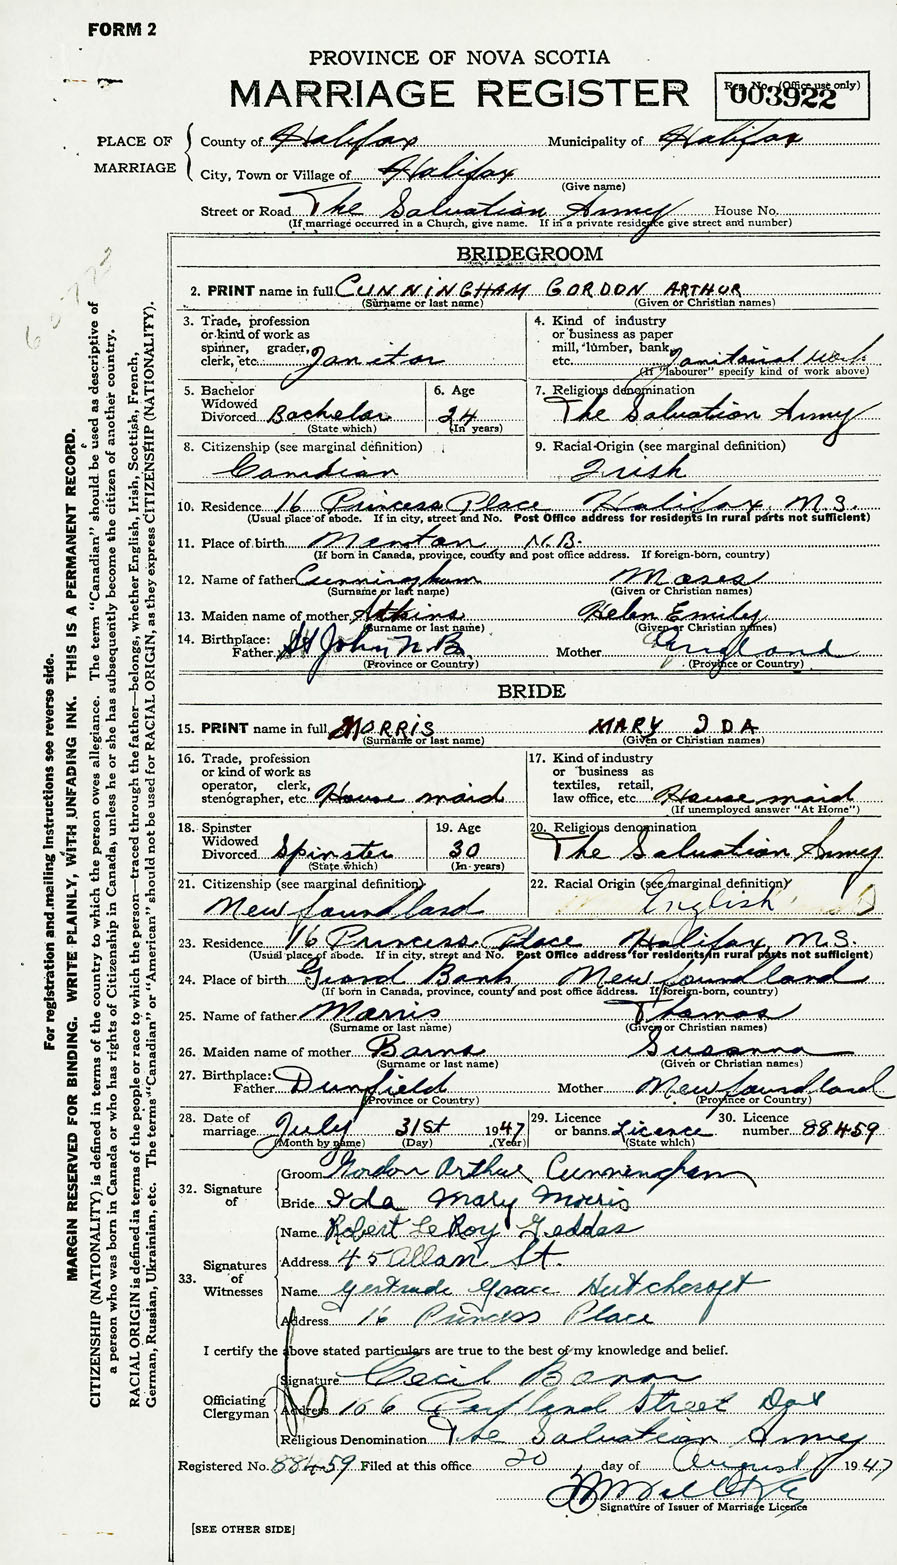 FORM 2
PROVINCE OF NOVA SCOTIA
MARRIAGE REGISTER
Reg. No. (Office use only)
003922
PLACE OF MARRIAGE
County of Halifax Municipality of Halifax
City, Town or Village of Halifax
(Give name)
Street or Road The Salvation Army House No.
(If marriage occurred in a Church, give name. If in a private residence give street and number)
BRIDEGROOM
2. PRINT name in full CUNNINGHAM GORDON ARTHUR
(Surname or last name) (Given or Christian names)
3. Trade, profession or kind of work as spinner, grader, clerk, etc. Janitor
4. Kind of industry or business as paper mill, lumber, bank, etc. Janitorial Work
(If "labourer" specify kind of work above)
5. Bachelor Widowed Divorced Bachelor
(State which)
6. Age 24
(In years)
7. Religious denomination
The Salvation Army
8. Citizenship (see marginal definition)
Canidian
9. Racial Origin (see marginal definition)
Irish
10. Residence 16 Princess Place Halifax, N.S.
(Usual place of abode. If in city, street and No. Post Office address for residents in rural parts not sufficient)
11. Place of birth N.B.
(If born in Canada, province, county and post office address. If foreign-born, country)
12. Name of father Cunningham Moses
(Surname or last name) (Given or Christian names)
13. Maiden name of mother Atkins Helen Emily
(Surname or last name) (Given or Christian names)
14. Birthplace:
Father St John N.B. Mother England
(Province or Country) (Province or Country)
BRIDE
15. PRINT name in full MORRIS MARY IDA
(Surname or last name) (Given or Christian names)
16. Trade, profession or kind of work as operator, clerk, stenographer, etc. House maid
17. Kind of industry or business as textiles, retail, law office, etc. House maid
(If unemployed answer "At Home")
18. Spinster Widowed Divorced Spinster
(State which)
19. Age 30
(In years)
20. Religious denomination
The Salvation Army
21. Citizenship (see marginal definition)
Newfoundland
22. Racial Origin (see marginal definition)
English
23. Residence 16 Princess Place Halifax, N.S.
(Usual place of abode. If in city, street and No. Post Office address for residents in rural parts not sufficient)
24. Place of birth Grand Bank Newfoundland
(If born in Canada, province, county and post office address. If foreign-born, country)
25. Name of father Morris Thomas
(Surname or last name) (Given or Christian names)
26. Maiden name of mother Barns Susanna
(Surname or last name) (Given or Christian names)
27. Birthplace:
Father Dunfield Mother Newfoundland
(Province or Country) (Province or Country)
28. Date of marriage July 31st 1947
(Month by name) (Day) (Year)
29. Licence or banns Licence
(State which)
30. Licence number 88459
32. Signature of
Groom Gordon Arthur Cunningham
Bride Ida Mary Morris
33. Signatures of Witnesses
Name Robert LeRoy Geddes
Address 45 Allan St.
Name Gertrude Grace Hutchcroft
Address 16 Princess Place
I certify the above stated particulars are true to the best of my knowledge and belief.
Officiating Clergyman
Signature Cecil
Address 166 Portland Street Dart
Religious Denomination The Salvation Army
Registered No. 88459 Filed at this office 20 day of August 1947
Signature of Issuer of Marriage Licence
[SEE OTHER SIDE]
For registration and mailing instructions see reverse side.
MARGIN RESERVED FOR BINDING. WRITE PLAINLY, WITH UNFADING INK. THIS IS A PERMANENT RECORD.
CITIZENSHIP (NATIONALITY) is defined in terms of the country to which the person owes allegiance. The term "Canadian" should be used as descriptive of
a person who was born in Canada or who has rights of Citizenship in Canada, unless he or she has subsequently become the citizen of another country.
RACIAL ORIGIN is defined in terms of the people or race to which the person—traced through the father—belongs, whether English, Irish, Scottish, French,
German, Russian, Ukrainian, etc. The terms "Canadian" or "American" should not be used for RACIAL ORIGIN, as they express CITIZENSHIP (NATIONALITY).